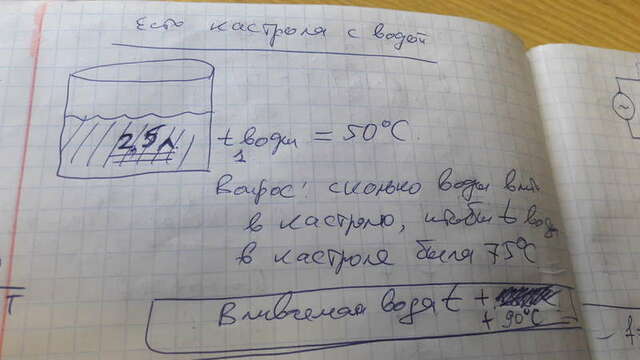 Есть кастрюля с водой
2,5 л.
t₁ воды = 50°C.
Вопрос: сколько воды влить
в кастрюлю, чтобы t воды
в кастрюле была 75°C
Вливаемая вода t +
+ 90°C